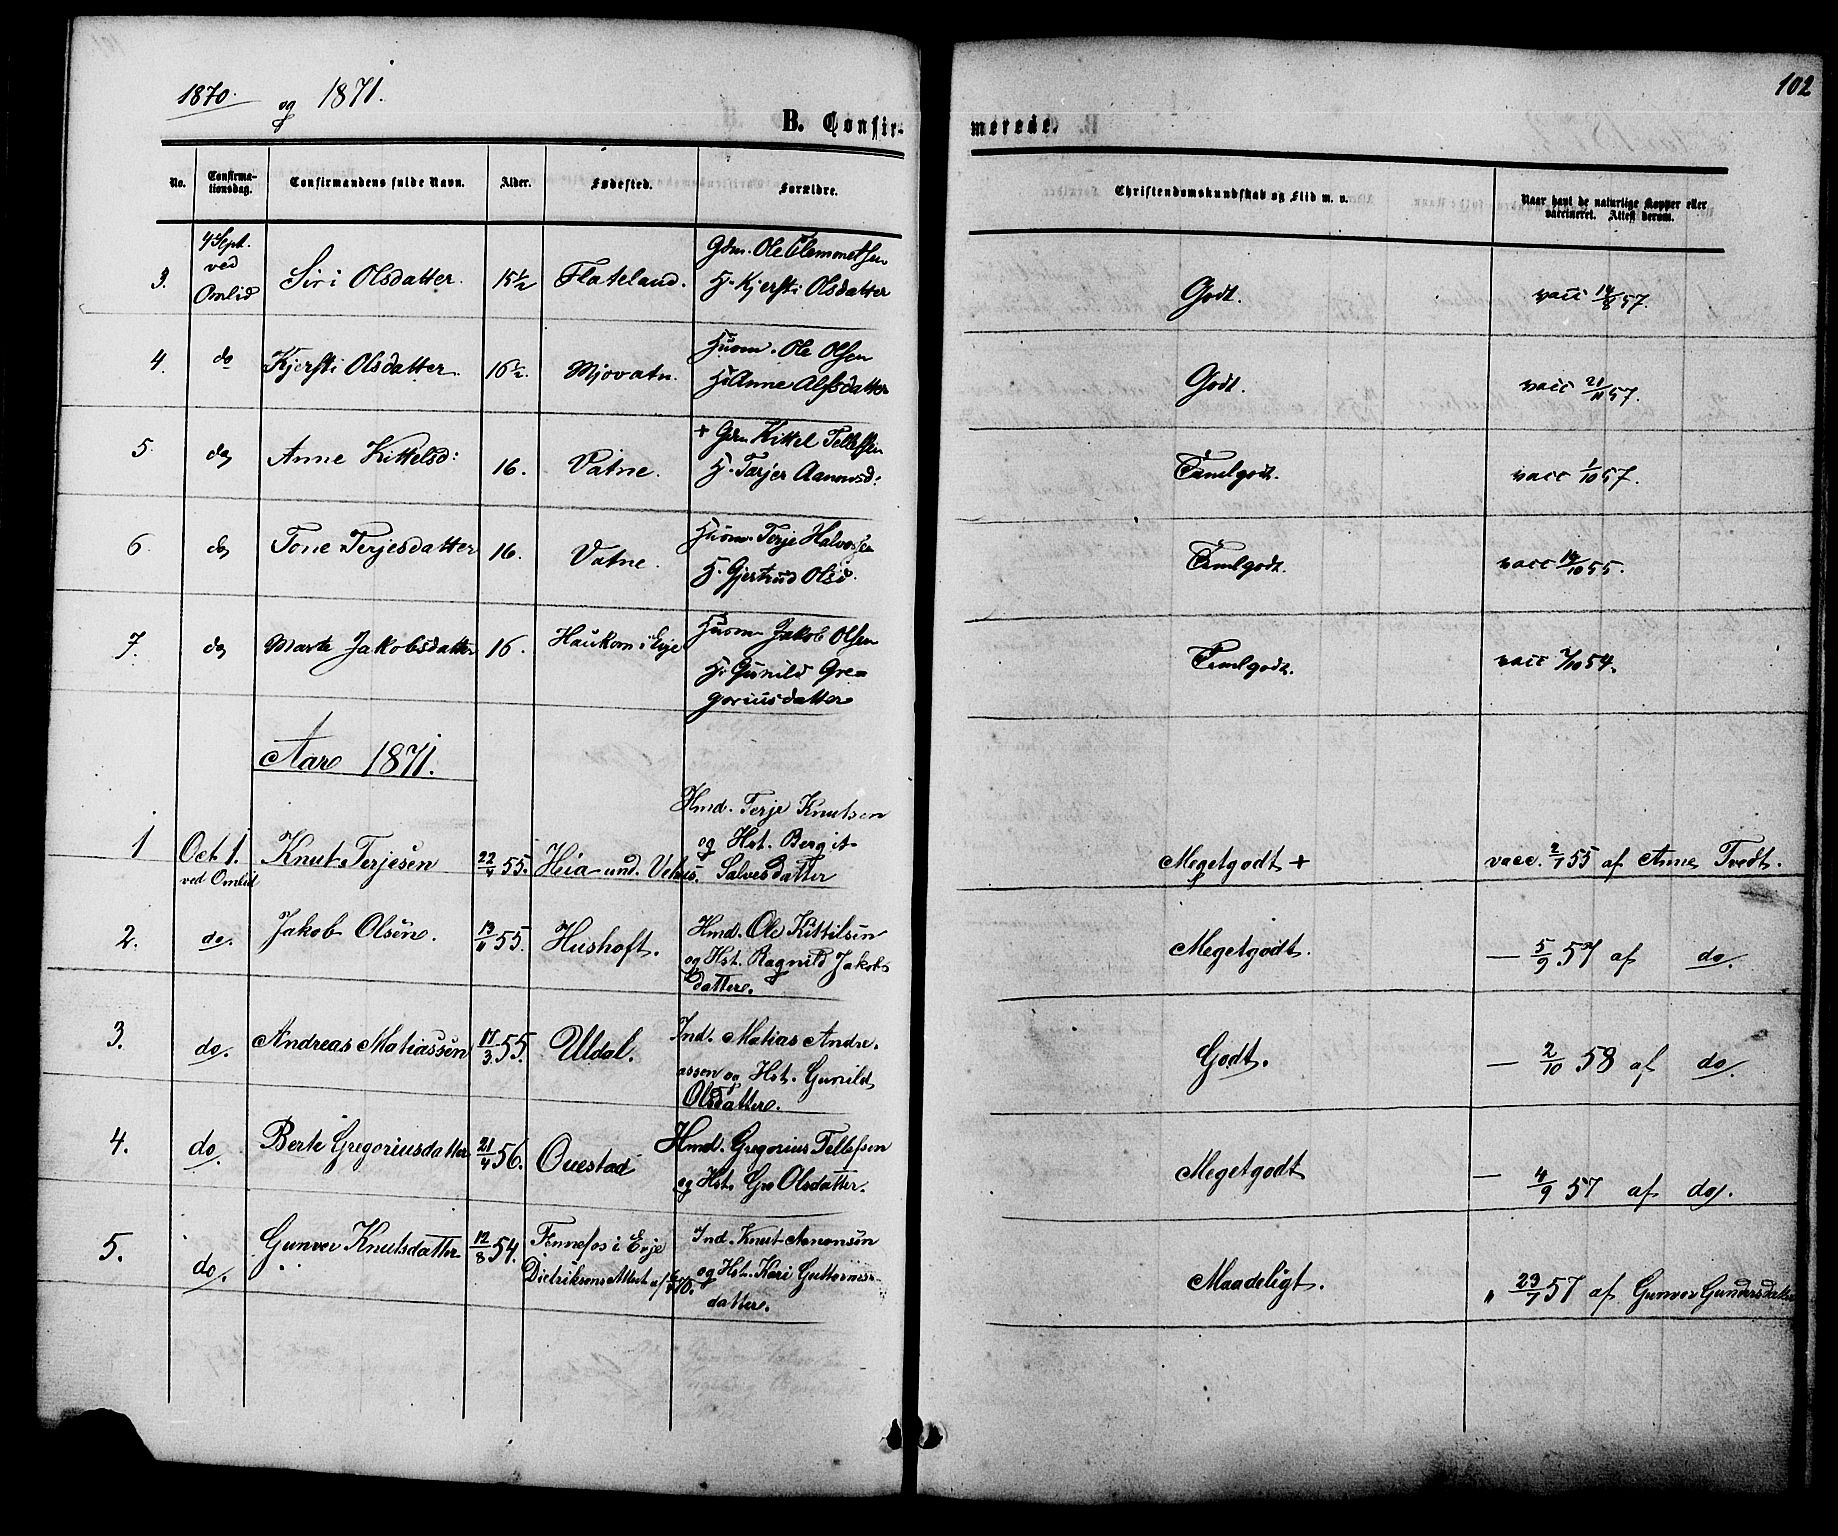 1870. og 1871.
102
B. Confirmerede.
No. Confirmationsdag. Confirmandens fulde Navn. Alder. Fødested. Forældre. Christendomskundskab og Flid m. v. Naar havt de naturlige Kopper eller vaccineret. Attest derom.
3. 4 Sept. ved Omlid Siri Olsdatter. 15½ Flateland. Gdm. Ole Clemmetsen H. Kjersti Olsdatter Godt. vacc 14/8 57.
4. do Kjersti Olsdatter. 16½. Mjovatn. Husm. Ole Olsen H. Anne Alfsdatter Godt. vacc 21/11 57.
5. do Anne Kittelsd: 16. Vatne. + Gdm Kittel Tellefsen H. Tarjer Aanonsd: Temlgodt. vacc 1/10 57.
6. do Tone Terjesdatter 16. Vatne. Husm. Terje Halvorsen H. Gjertrud Olsd. Temlgodt. vacc 14/10 55.
7. do Marte Jakobsdatter 16. Haukom i Evje Husm Jakob Olsen H. Gunild Gregoriusdatter Temlgodt. vacc 7/10 54.
Aar 1871.
1 Oct 1. ved Omlid Knut Terjesen 22/4 55. Heia und. Vehus. Hmd. Terje Knutsen og Hst. Bergit Salvesdatter Megetgodt + vacc. 2/7 55 af Anne Tvedt.
2. do. Jakob Olsen. 13/11 55. Hushoft. Hmd. Ole Kittilsen og Hst. Ragnild Jakobsdatter. Megetgodt. — 5/9 57 af do.
3. do. Andreas Matiassen 17/3 55. Uldal. Ind. Matias Andreassen og Hst. Gunild Olsdatter. Godt. — 2/10 58 af do.
4. do. Berte Gregoriusdatter 21/4 56. Ouestad Hmd. Gregorius Tellefsen og Hst. Gro Olsdatter. Megetgodt — 4/9 57 af do.
5. do. Gunvor Knutsdatter 12/8 54. Fennefos i Evje Dietriksons Attest af 70. Ind. Knut Aanonsen og Hst. Kari Guttormsdatter. Maadeligt. " 23/7 57 af Gunvor Gundersdatter